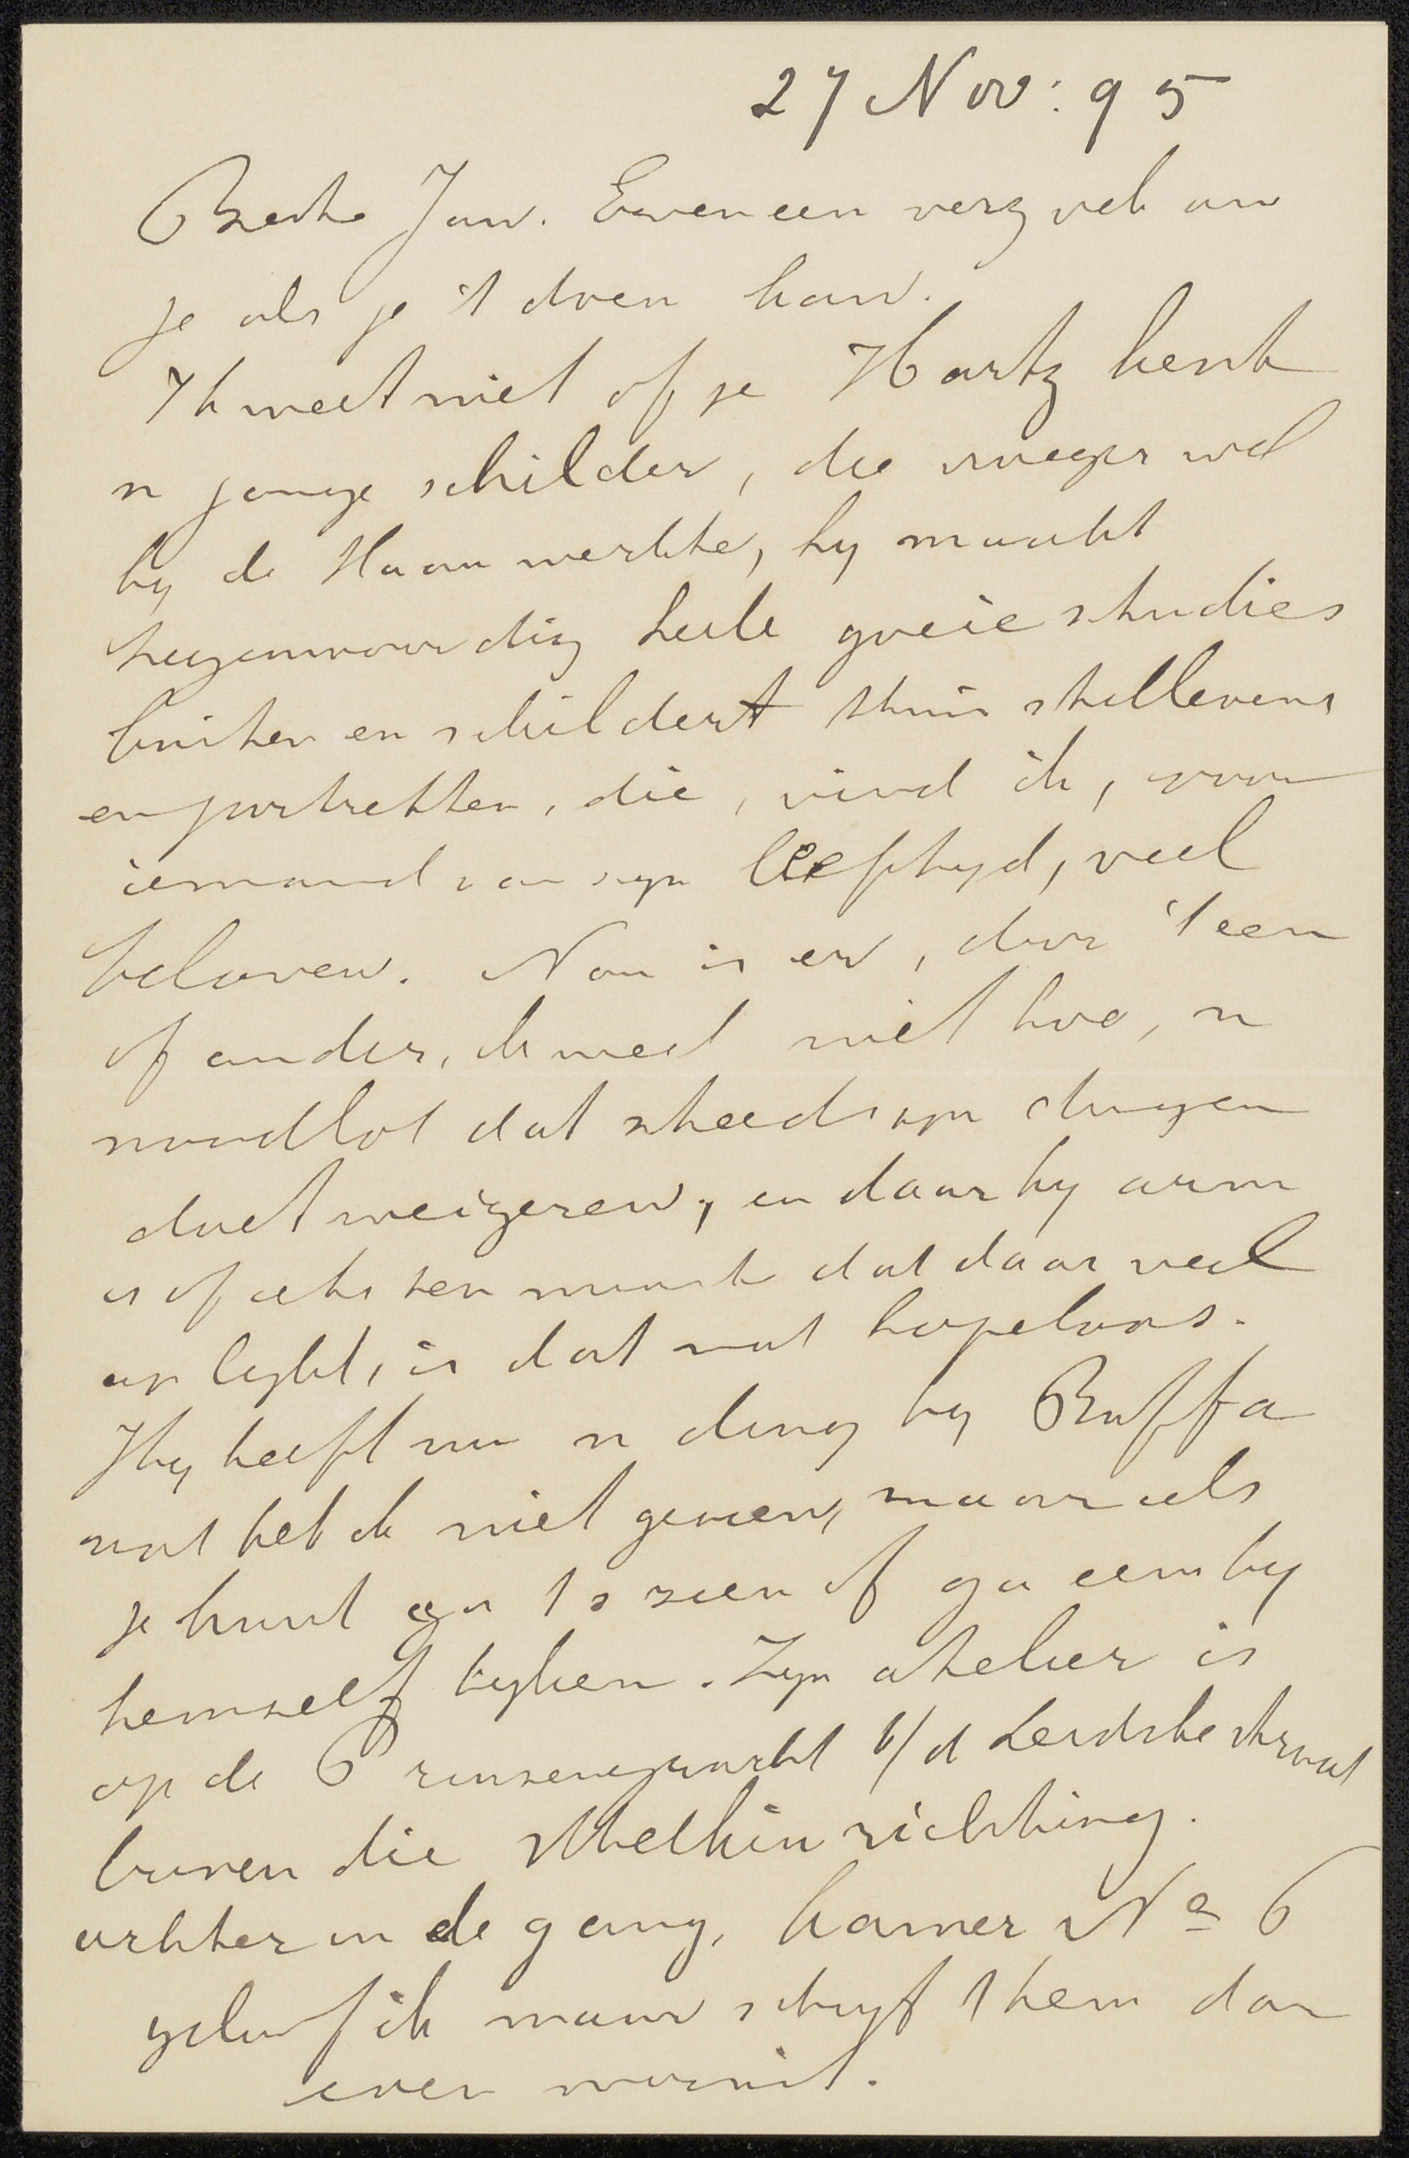 27 Nov: 95
Beste Jan. Even een verzoek aan
je als je 't doen kan.
Ik weet niet of je Hartz kent
n jonge schilder, die vroeger wel
by de Haan werkte, hy maakt
tegenwoordig heele goeie studies
buiten en schildert thuis stillevens
en portretten, die, vind ik, voor
iemand van zyn leeftyd, veel
beloven. Nou is er, door 't een
of ander, ik weet niet hoe, n
noodlot dat steeds zyn dingen
doet weigeren, en daar hy arm
is of iets den maakt dat daar veel
op lykt, is dat wat hopeloos.
Hy heeft nu n ding by Buffa
wat heb ik niet gezien, maar als
je kunt ga 's zien of ga eens by
hemself kyken. Zyn atelier is
op de Prinsengracht b/d Leidschestraat
boven die Melkinrichting.
achter in de gang, kamer No 6
geloof ik maar schryf 't hem dan
even vooruit.